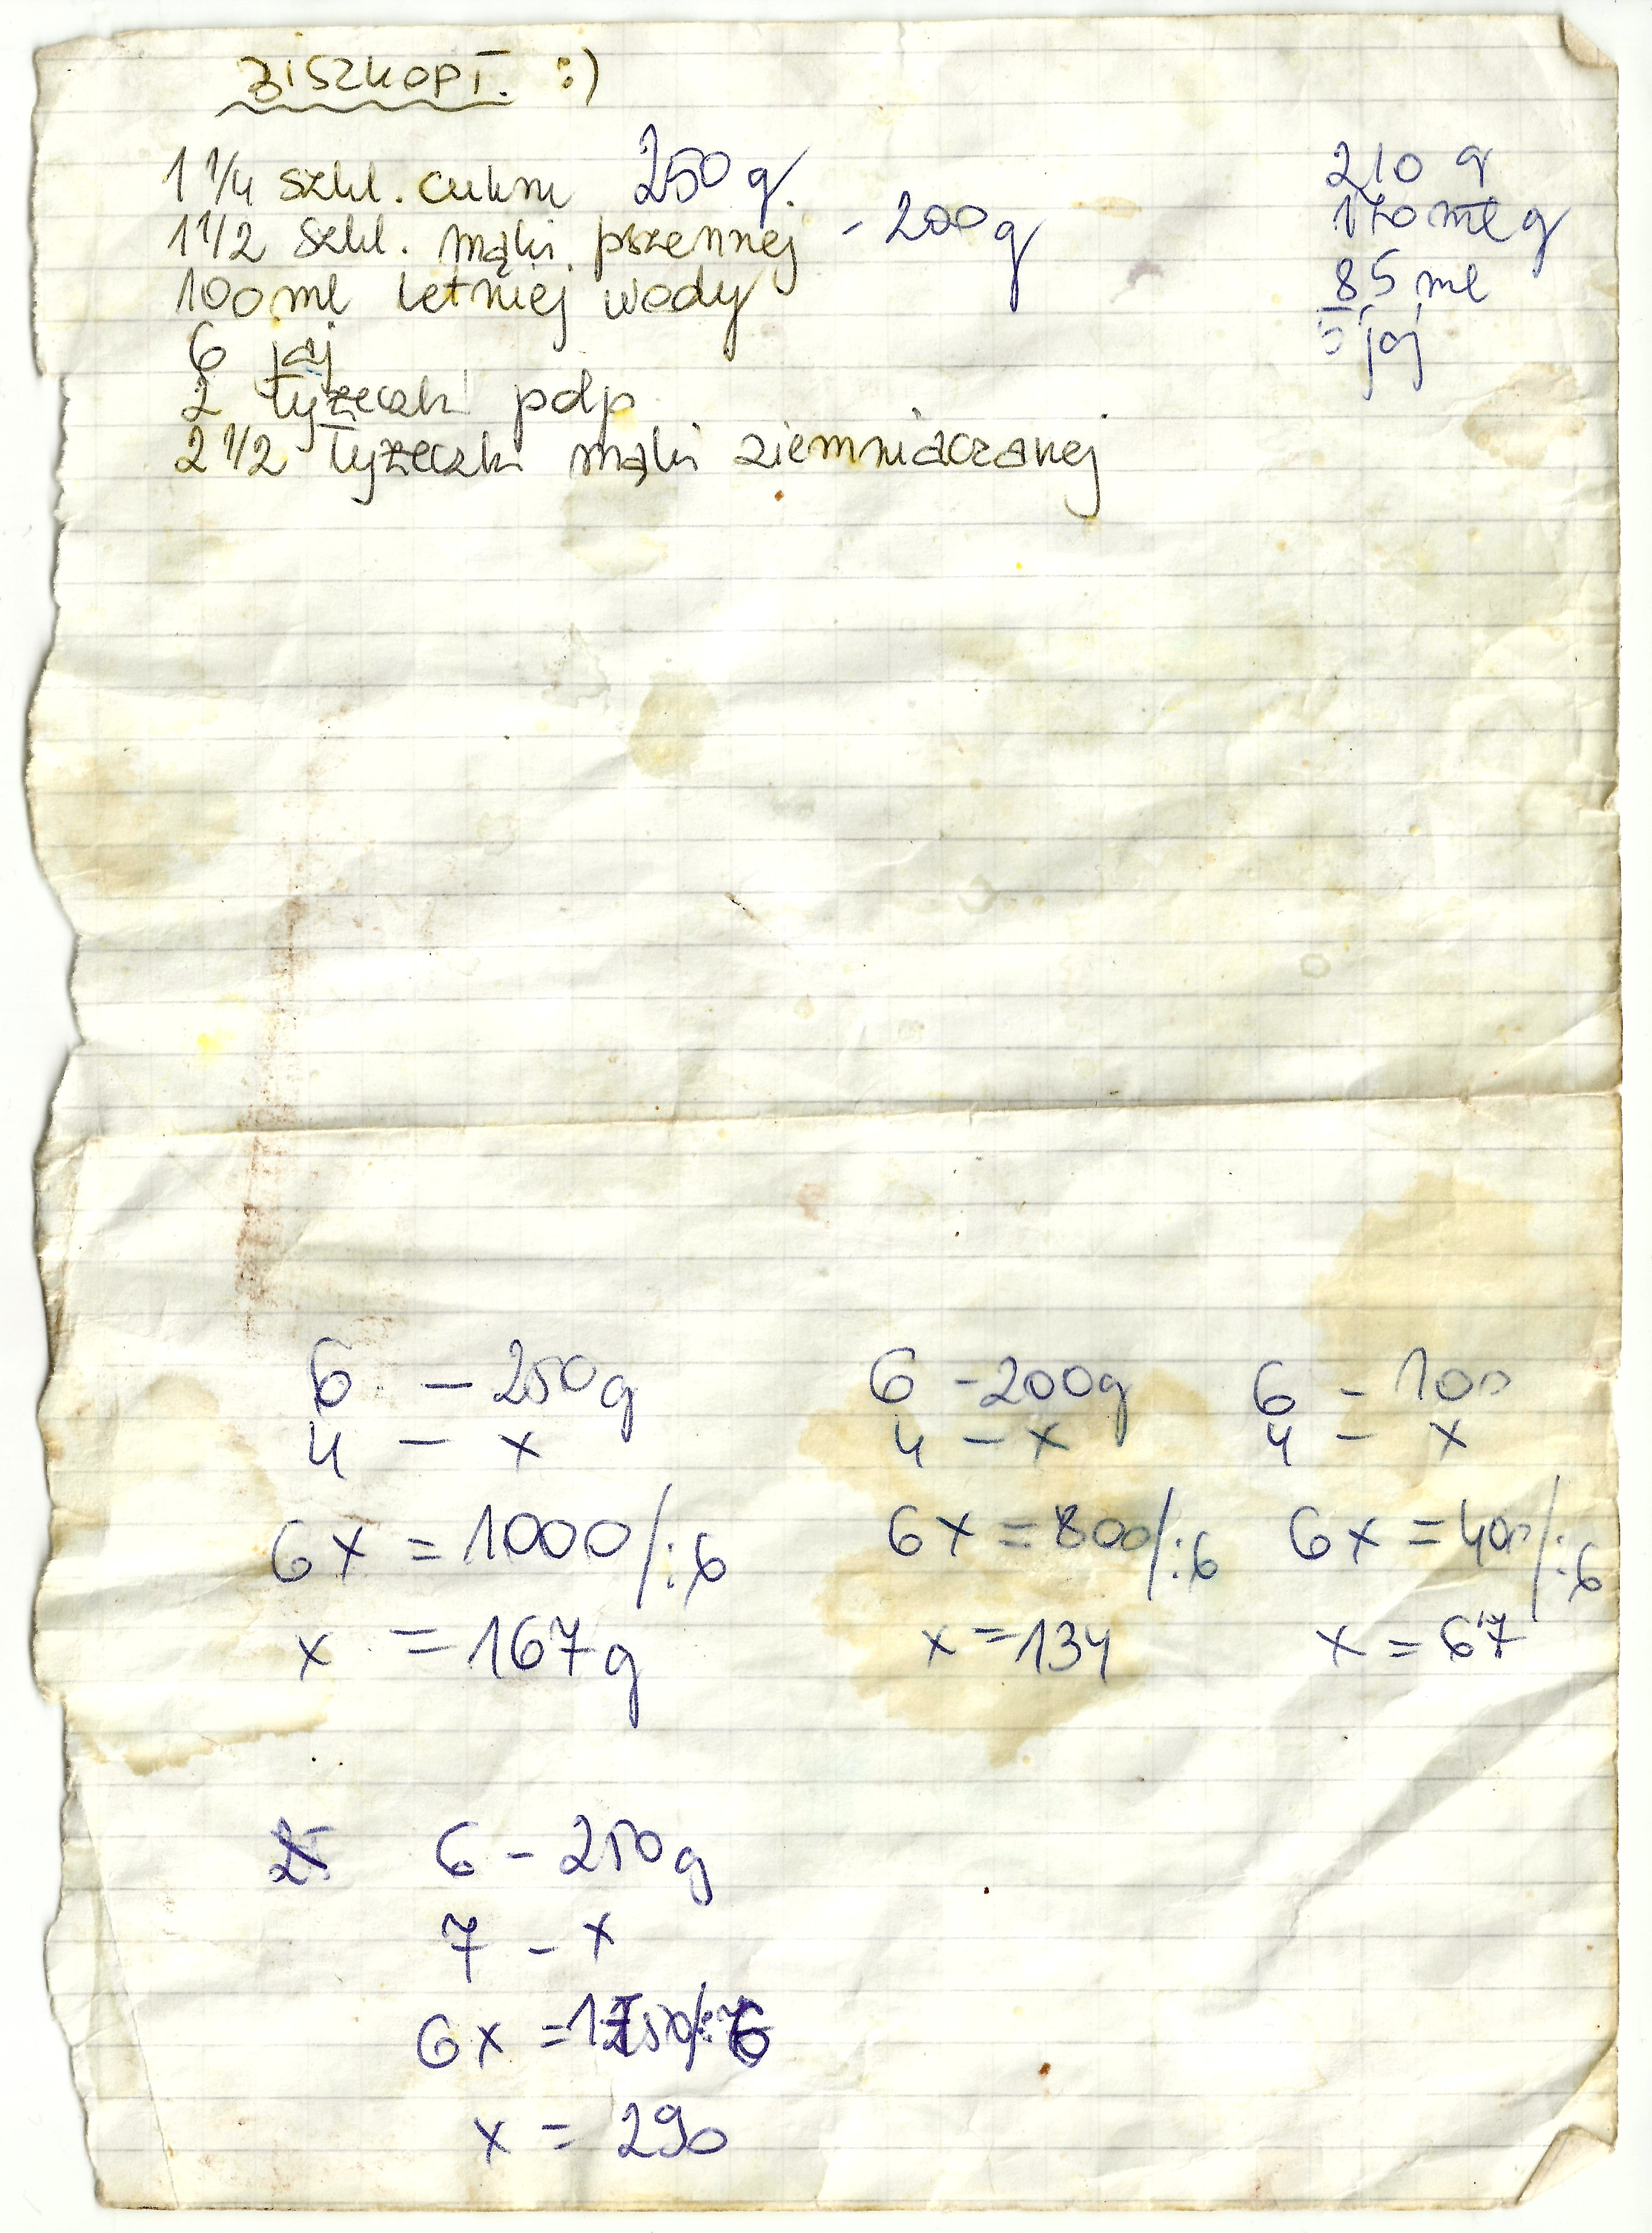 BISZKOPT. :)
1 1/4 szkl. cukru 250 g.
1 1/2 szkl. mąki pszennej - 200 g
100 ml letniej wody
6 jaj
2 łyżeczki pdp
2 1/2 łyżeczki mąki ziemniaczanej
210 g
170 ml g
85 ml
5 jaj
6 - 250g
4 - x
6x = 1000/:6
x = 167g
6 - 200g
4 - x
6x = 800/:6
x = 134
6 - 100
4 - x
6x = 400/:6
x = 67
6 - 250g
7 - x
6x = 1750/:6
x = 290